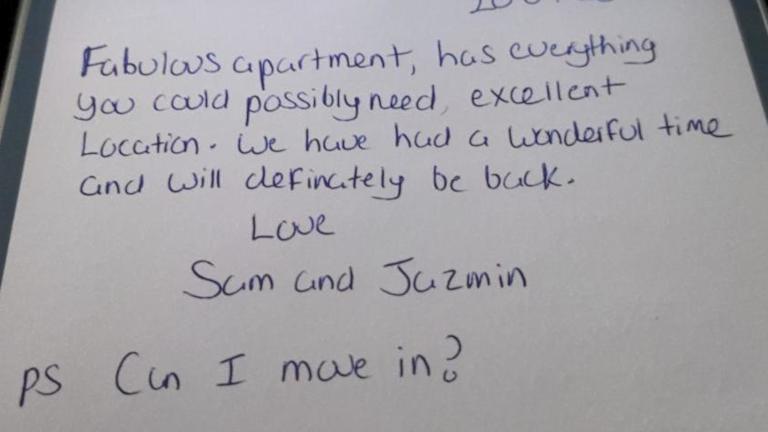 Fabulous apartment, has everything
you could possibly need, excellent
Location. We have had a wonderful time
and will definately be back.
Love
Sam and Jazmin
PS Can I move in?